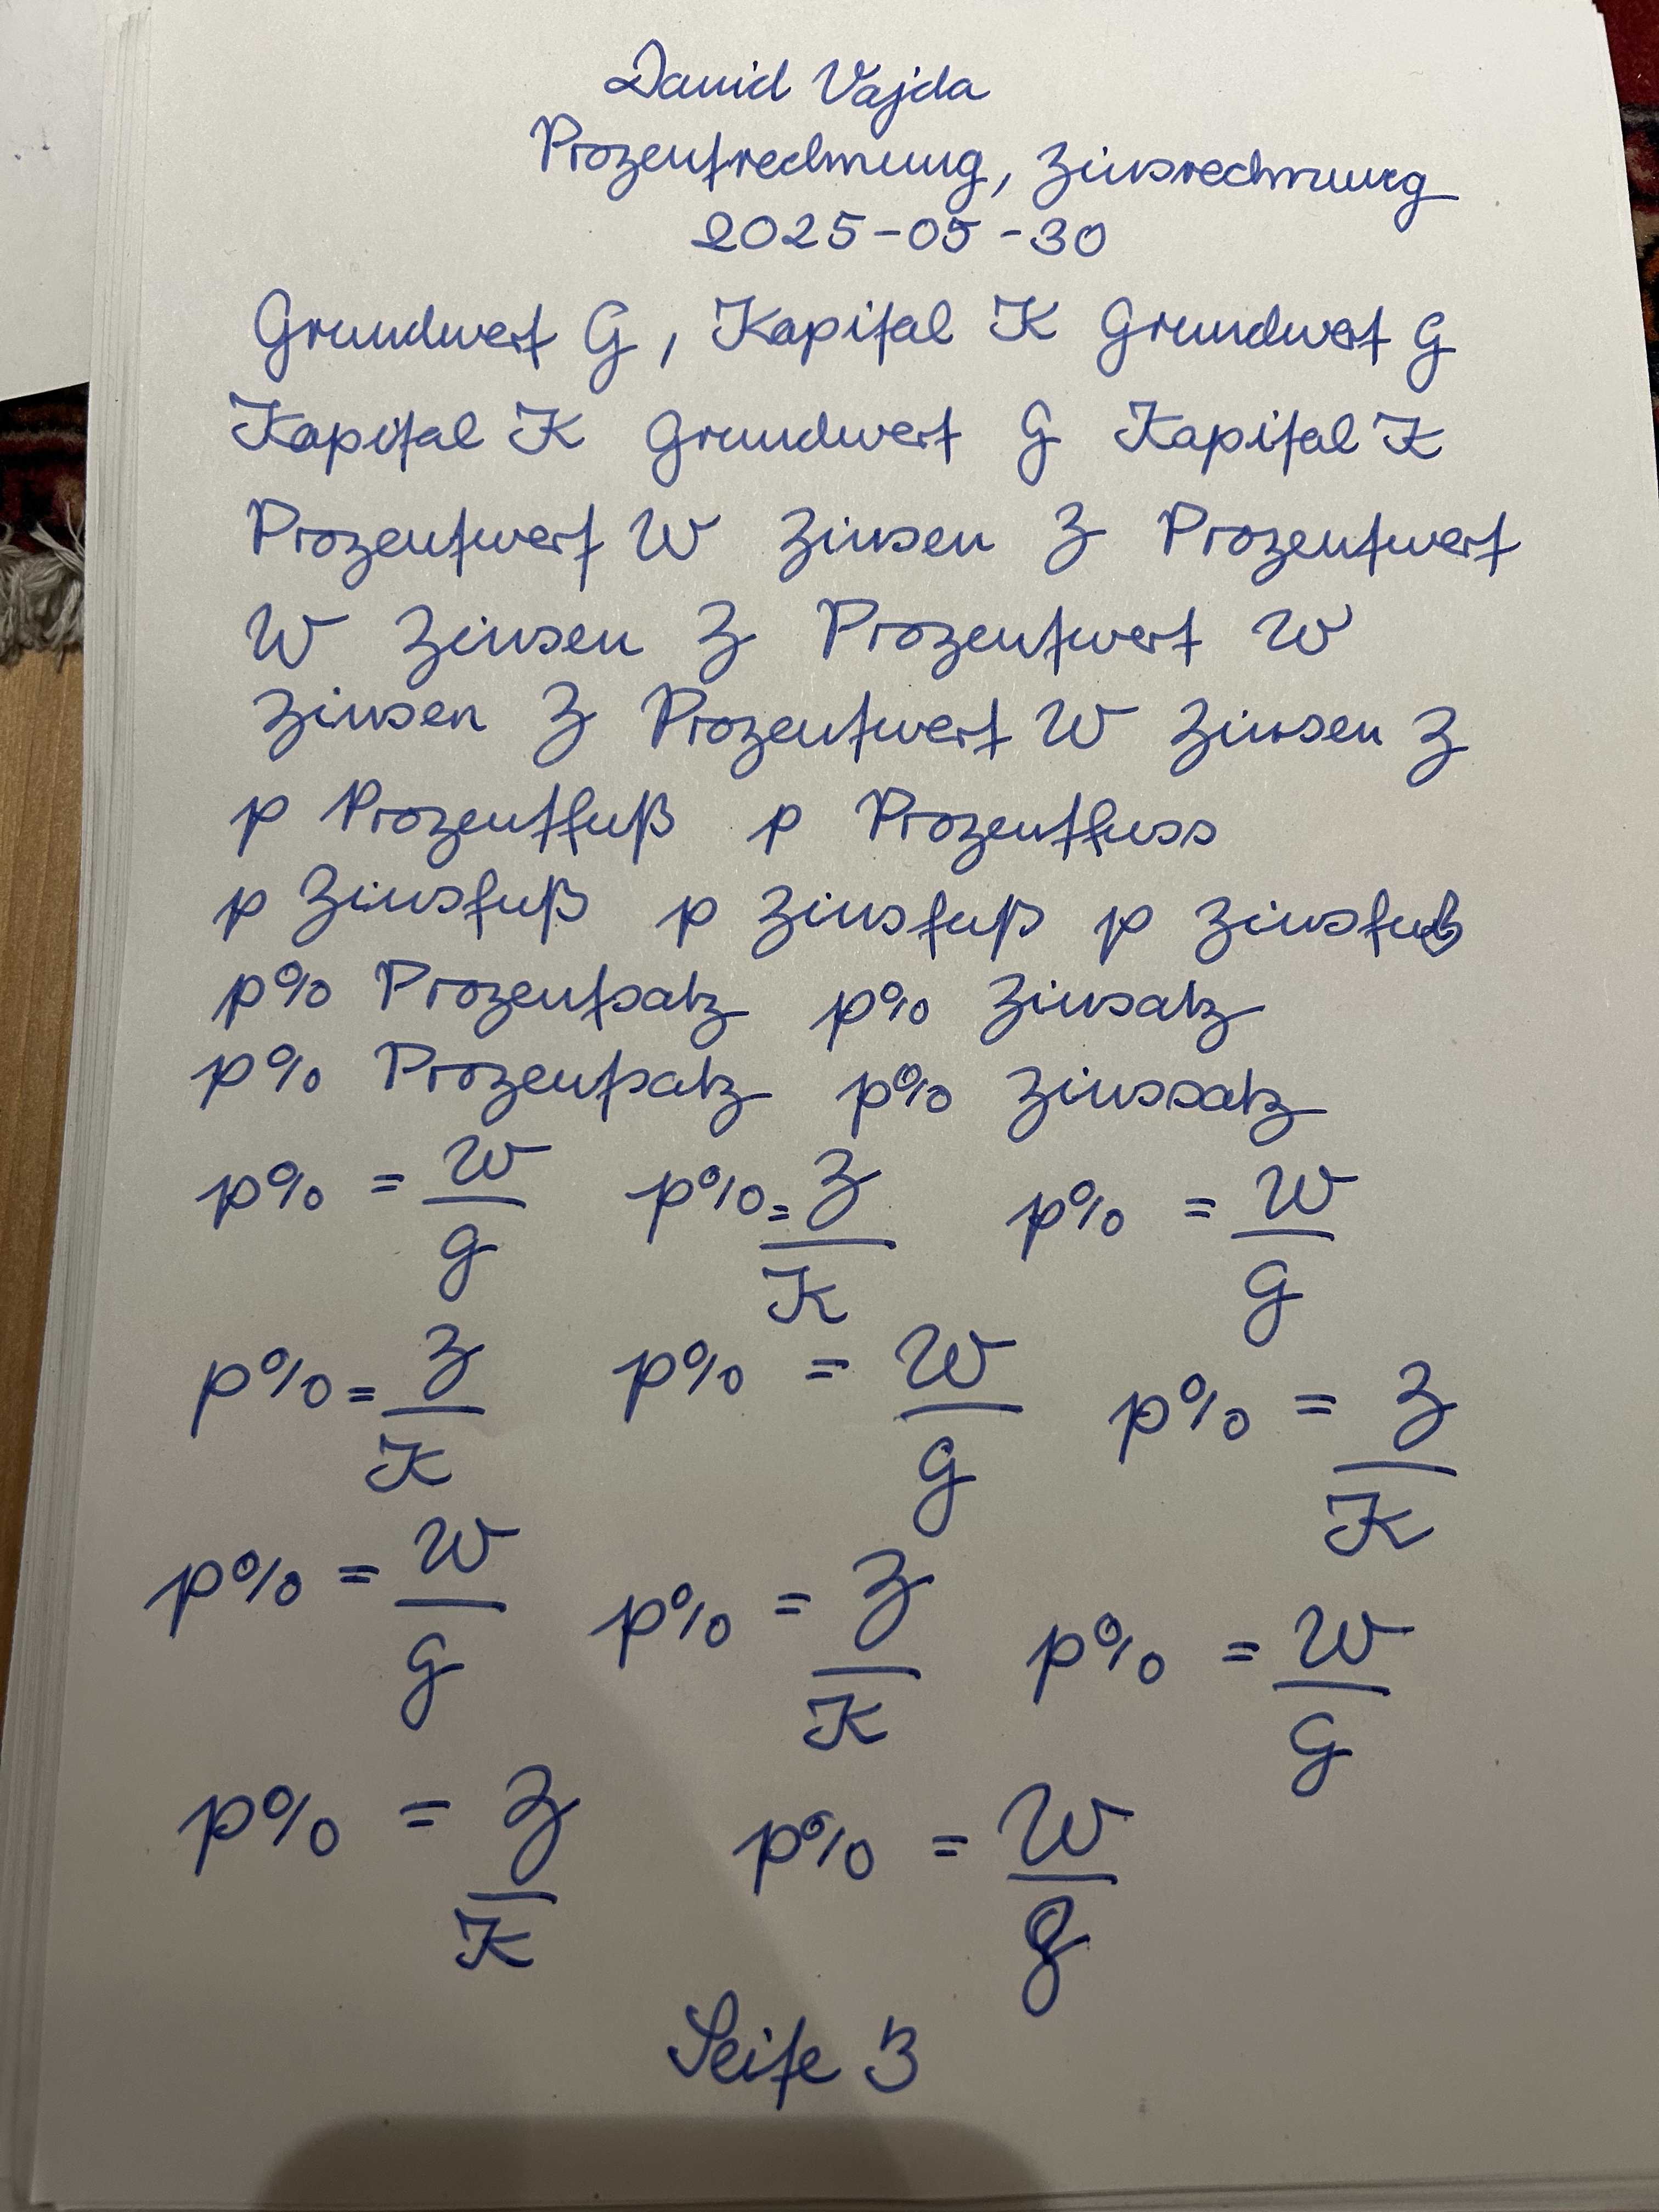 David Vajda
Prozentrechnung, Zinsrechnung
2025-05-30
Grundwert G, Kapital K Grundwert G
Kapital K Grundwert G Kapital K
Prozentwert W Zinsen Z Prozentwert
W Zinsen Z Prozentwert W
Zinsen Z Prozentwert W Zinsen Z
p Prozentfuß p Prozentfuss
p Zinsfuß p Zinsfuß p Zinsfuß
p% Prozentsatz p% Zinsatz
p% Prozentsatz p% Zinssatz
p% = W/G p% = Z/K p% = W/G
p% = Z/K p% = W/G p% = Z/K
p% = W/G p% = Z/K p% = W/G
p% = Z/K p% = W/G
Seite 3